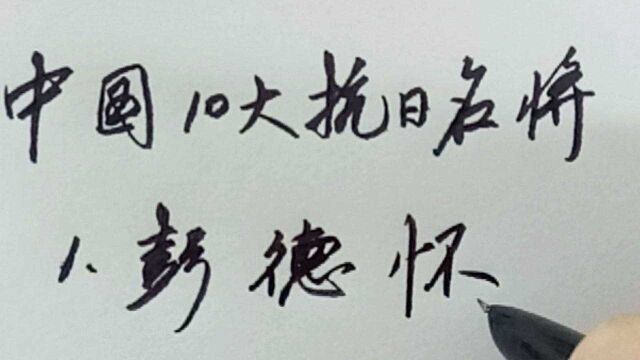 中国10大抗日名将
1、彭德怀